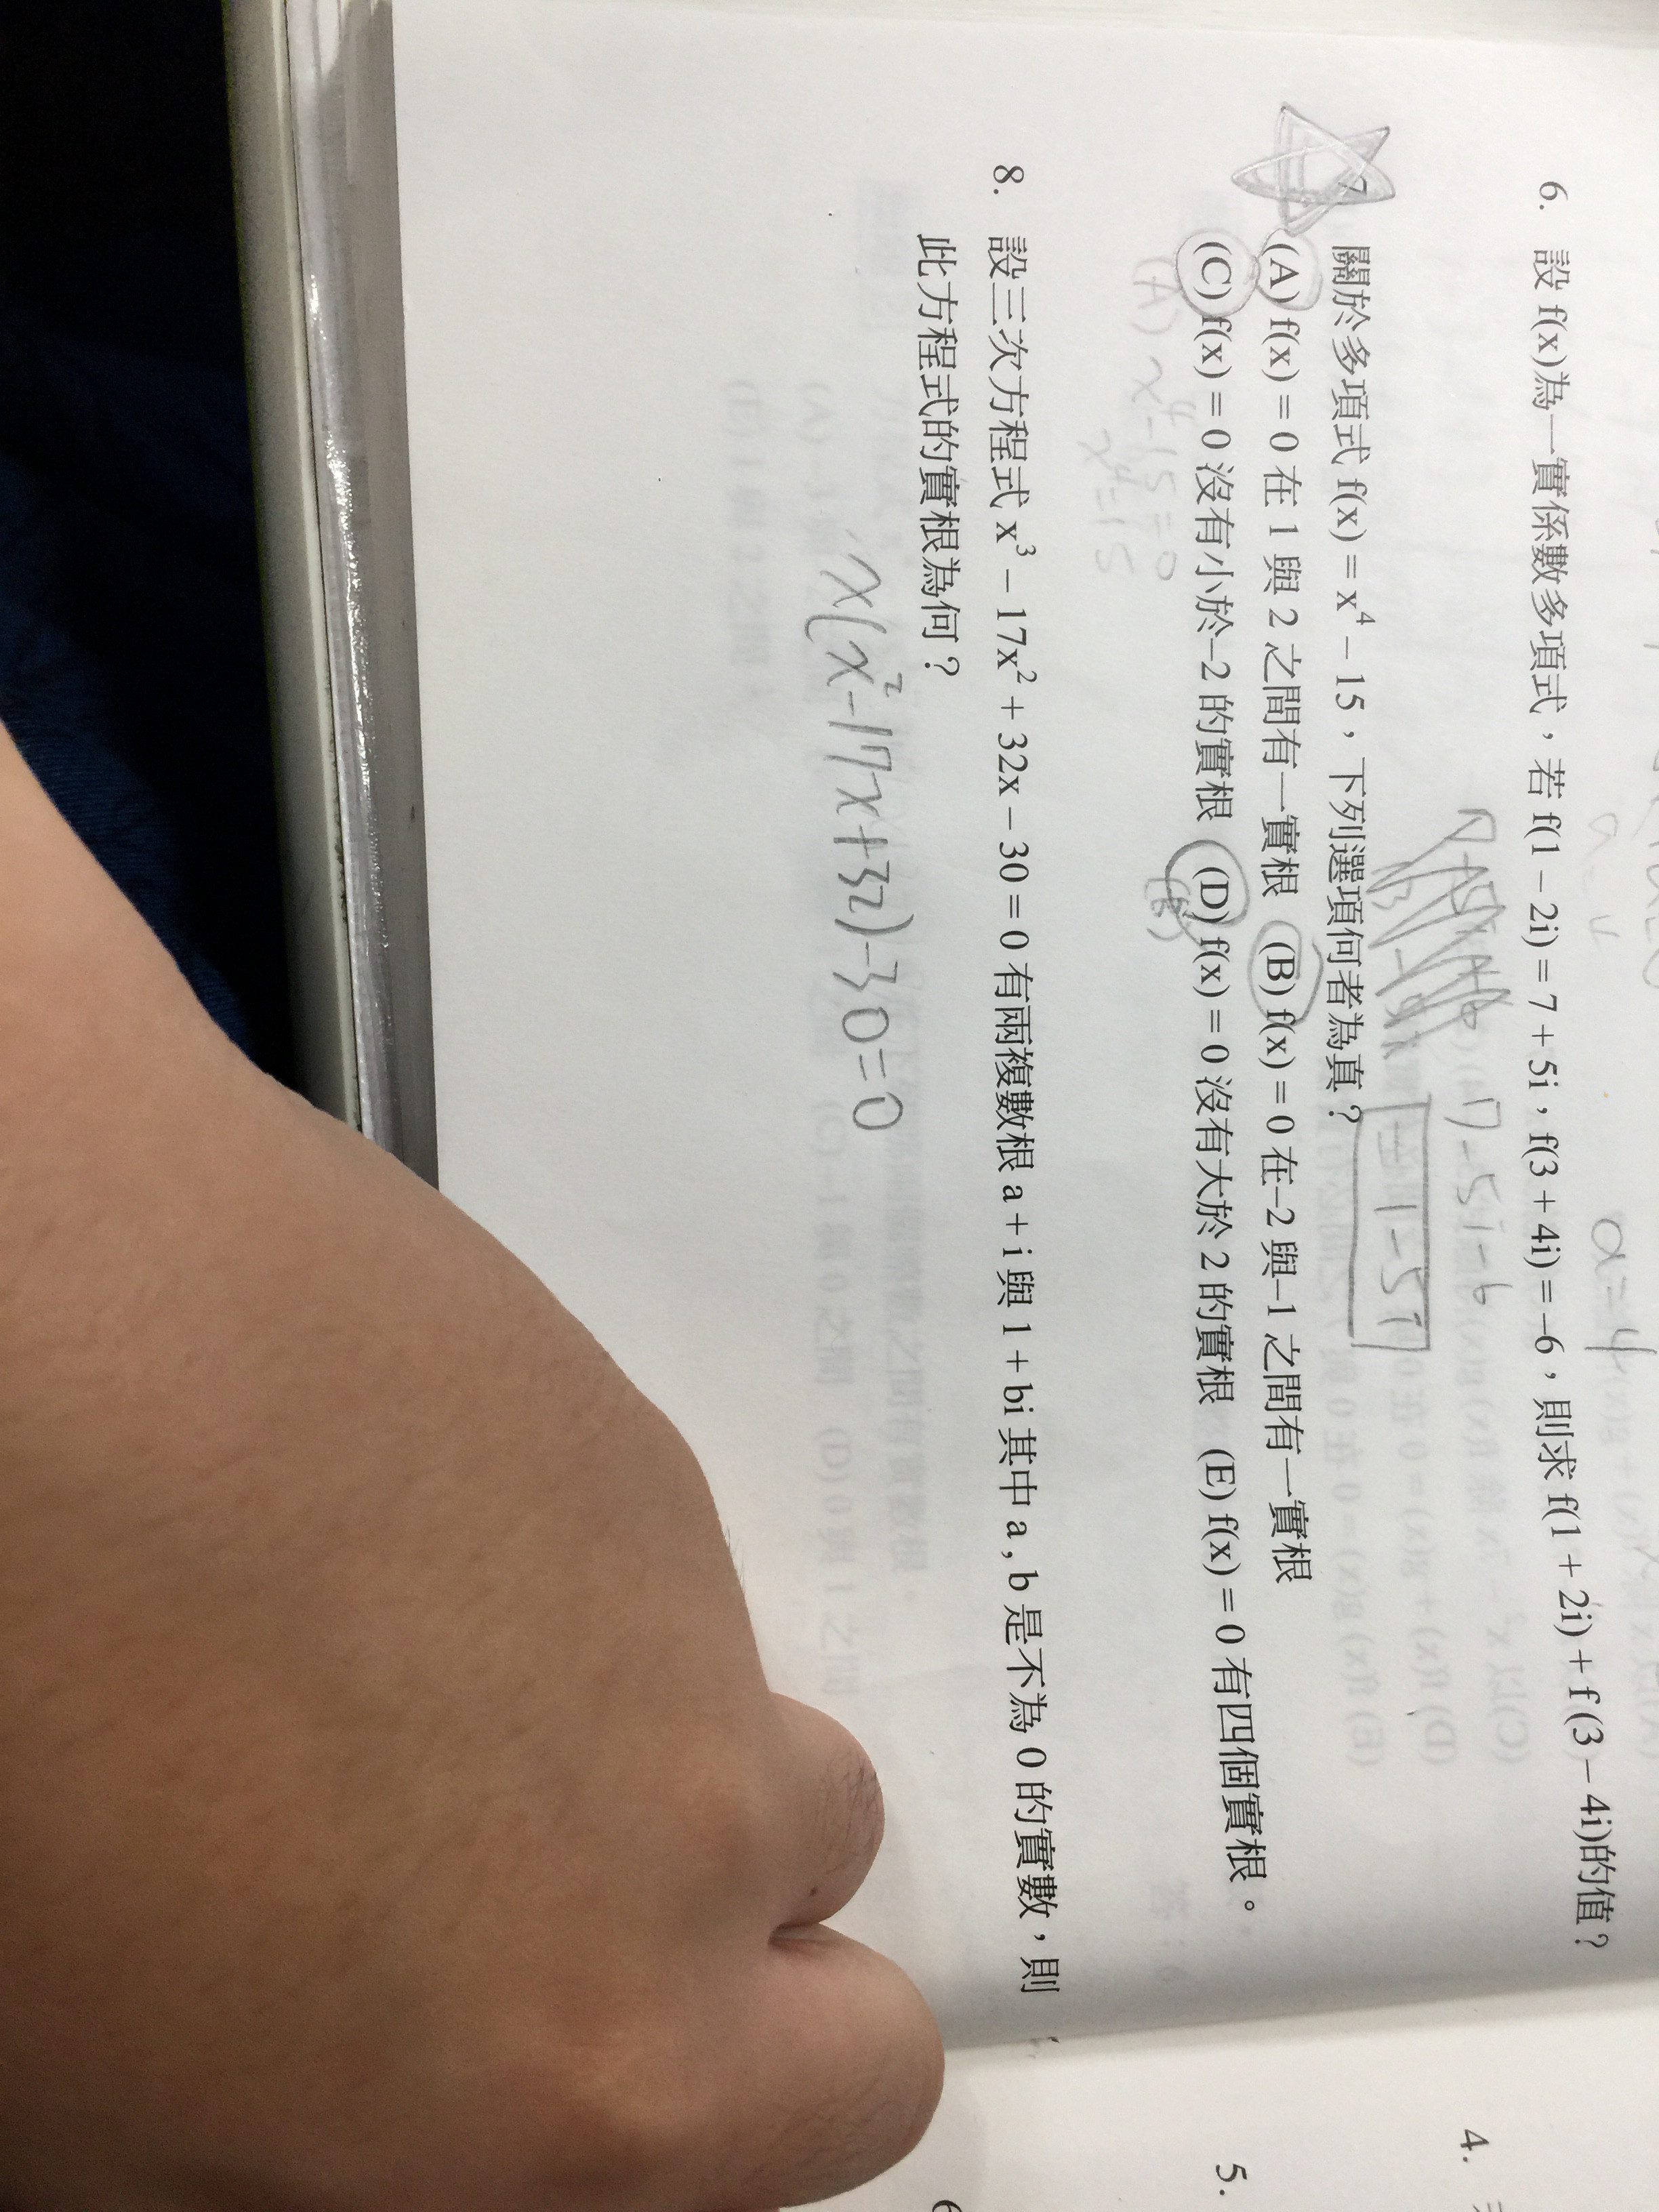 a = 4
6. 設 f(x)為一實係數多項式，若 f(1 − 2i) = 7 + 5i，f(3 + 4i) = −6，則求 f(1 + 2i) + f (3 − 4i)的值？
7-5i-6
=1-5i
7. 關於多項式 f(x) = x⁴ − 15，下列選項何者為真？
(A) f(x) = 0 在 1 與 2 之間有一實根 (B) f(x) = 0 在−2 與−1 之間有一實根
(C) f(x) = 0 沒有小於−2 的實根 (D) f(x) = 0 沒有大於 2 的實根 (E) f(x) = 0 有四個實根。
(A) x⁴-15=0
x⁴=15
8. 設三次方程式 x³ − 17x² + 32x − 30 = 0 有兩複數根 a + i 與 1 + bi 其中 a , b 是不為 0 的實數，則
此方程式的實根為何？
x(x²-17x+32)-30=0
4.
5.
6